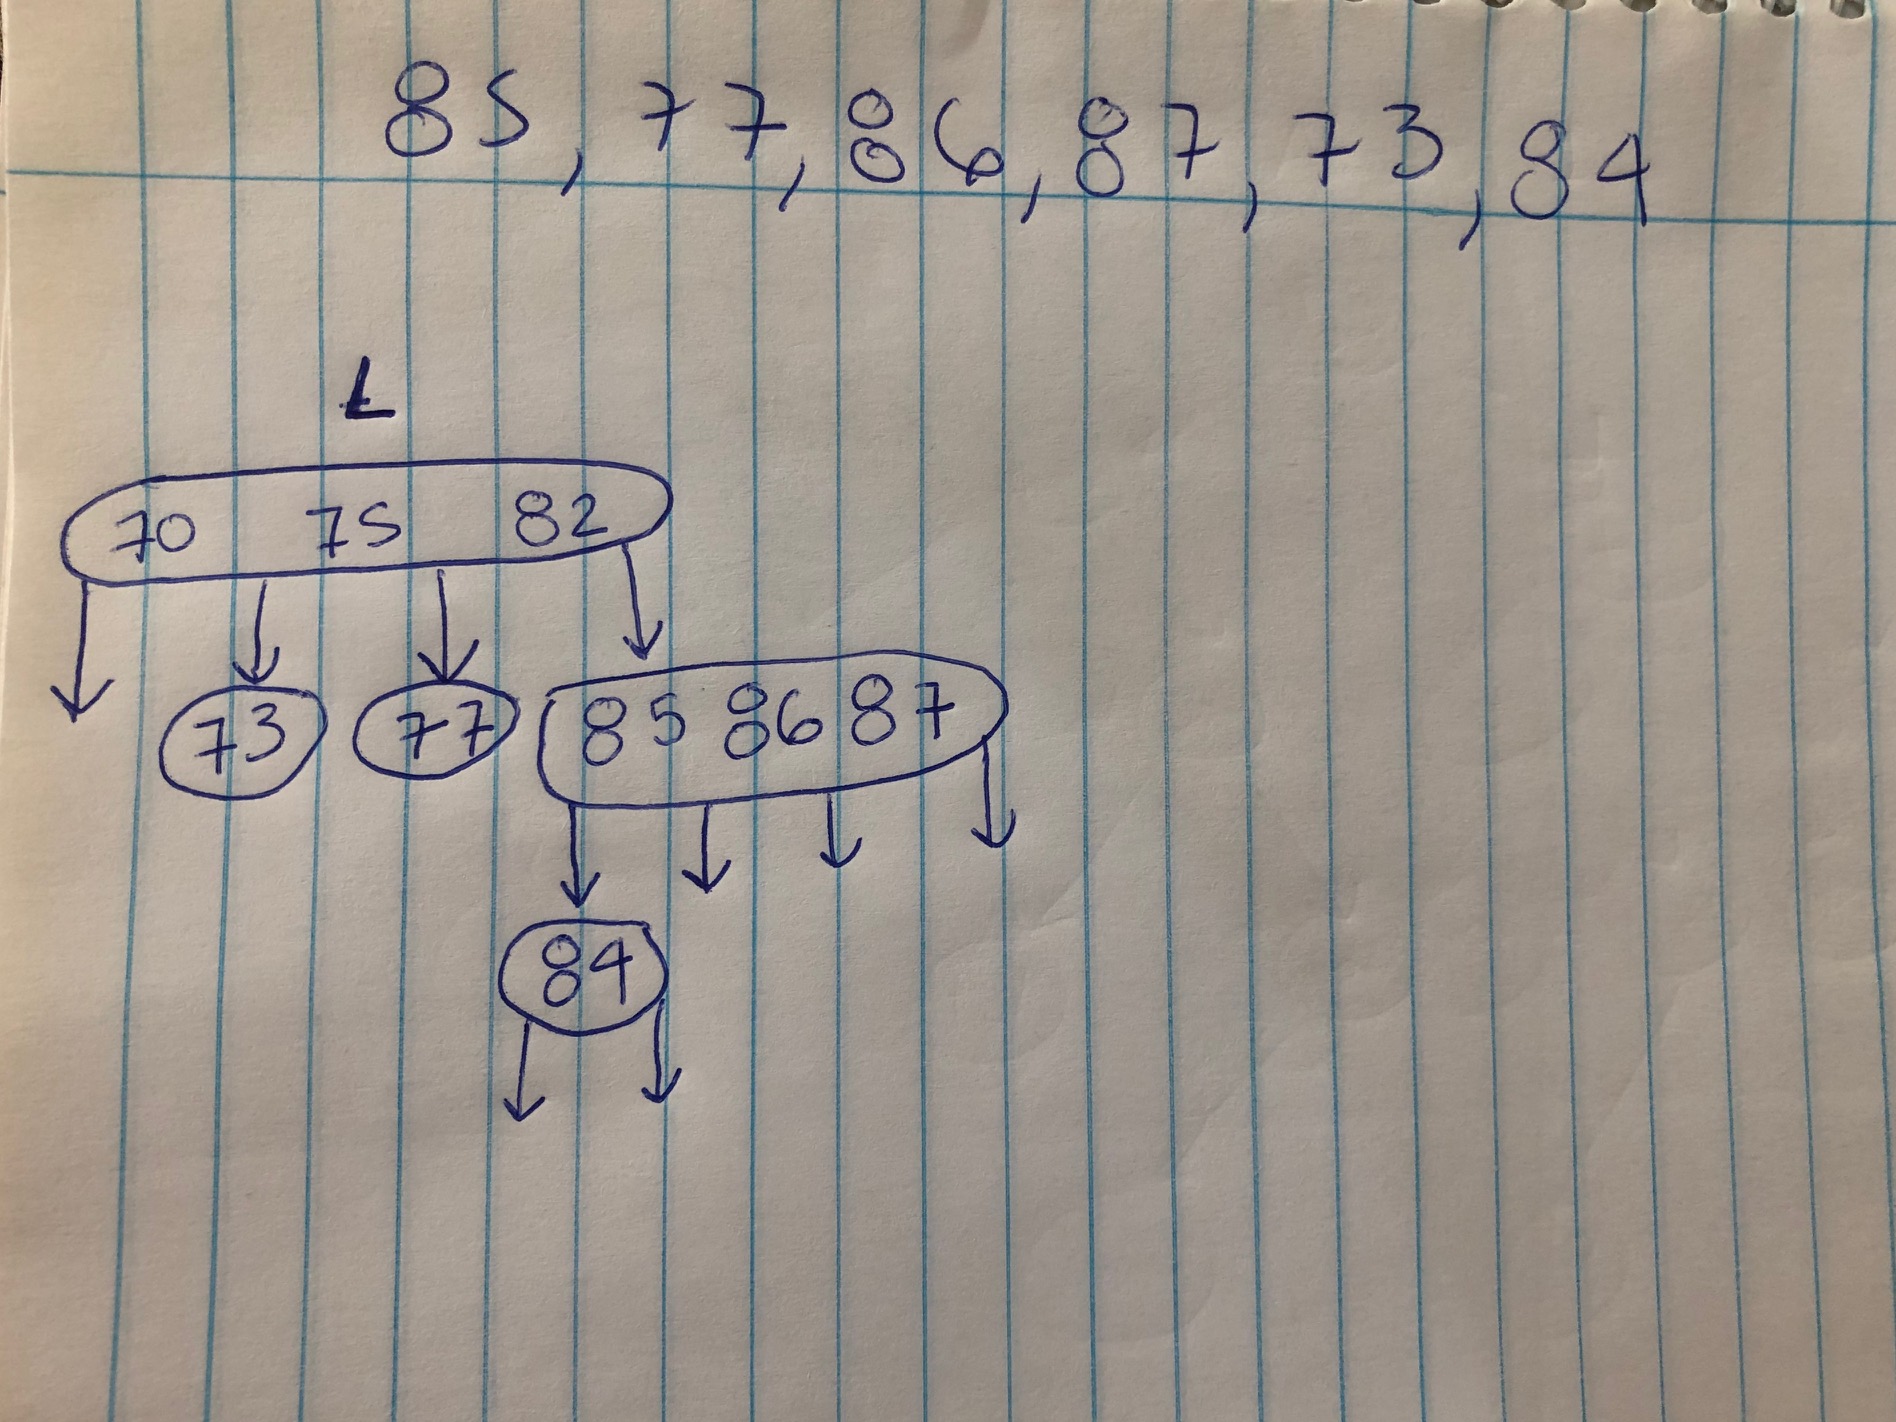 85, 77, 86, 87, 73, 84
L
70 75 82
73 77 85 86 87
84